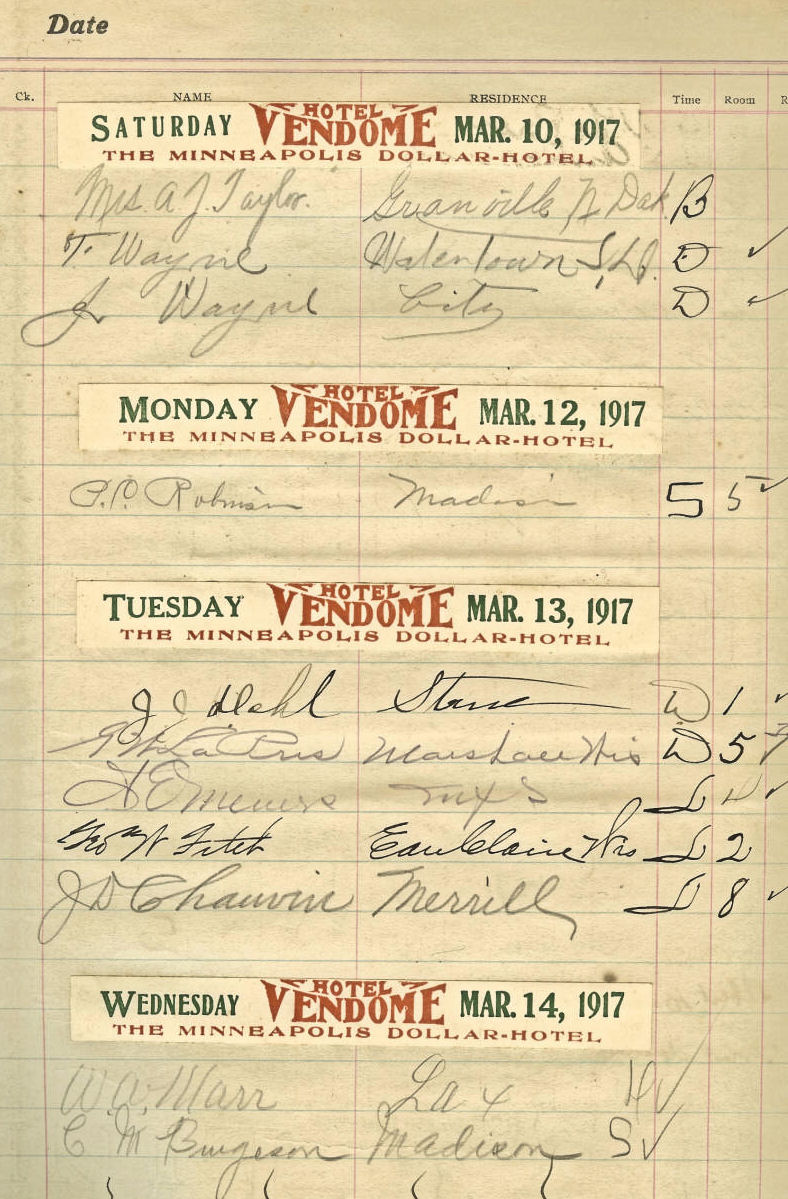 Date
Ck. NAME RESIDENCE Time Room
SATURDAY HOTEL VENDOME MAR. 10, 1917
THE MINNEAPOLIS DOLLAR-HOTEL
Mrs. A J. Taylor. Granville N Dak B
T. Wayne Watertown S.D. D ✓
J Wayne City D ✓
MONDAY HOTEL VENDOME MAR. 12, 1917
THE MINNEAPOLIS DOLLAR-HOTEL
P.P. Robinson Madison S 5 ✓
TUESDAY HOTEL VENDOME MAR. 13, 1917
THE MINNEAPOLIS DOLLAR-HOTEL
J J Dehl D 1 ✓
Wis D 5
✓
Geo W Fitch Eau Claire Wis 2
J D Chauvin Merrill 8 ✓
WEDNESDAY HOTEL VENDOME MAR. 14, 1917
THE MINNEAPOLIS DOLLAR-HOTEL
W. A. Marr La x ✓
C M Burgeson Madison S ✓